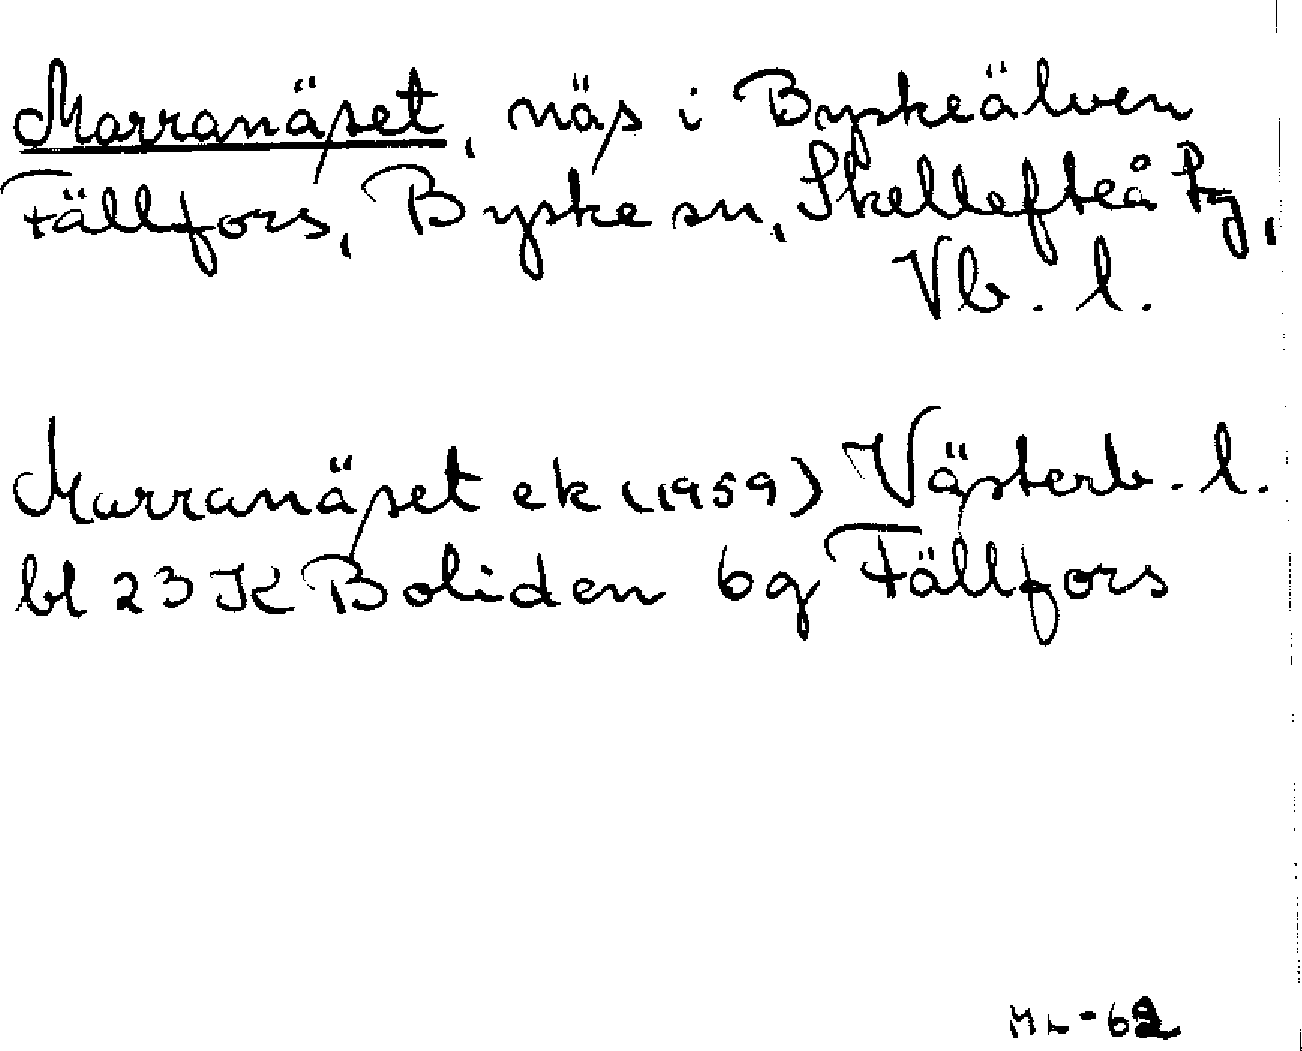 Marranäset, näs i Byskeälven
Fällfors, Byske sn, Skellefteå tg,
Vb. l.
Marranäset ek (1959) Västerb. l.
bl 23 K Boliden 6g Fällfors
ML-62